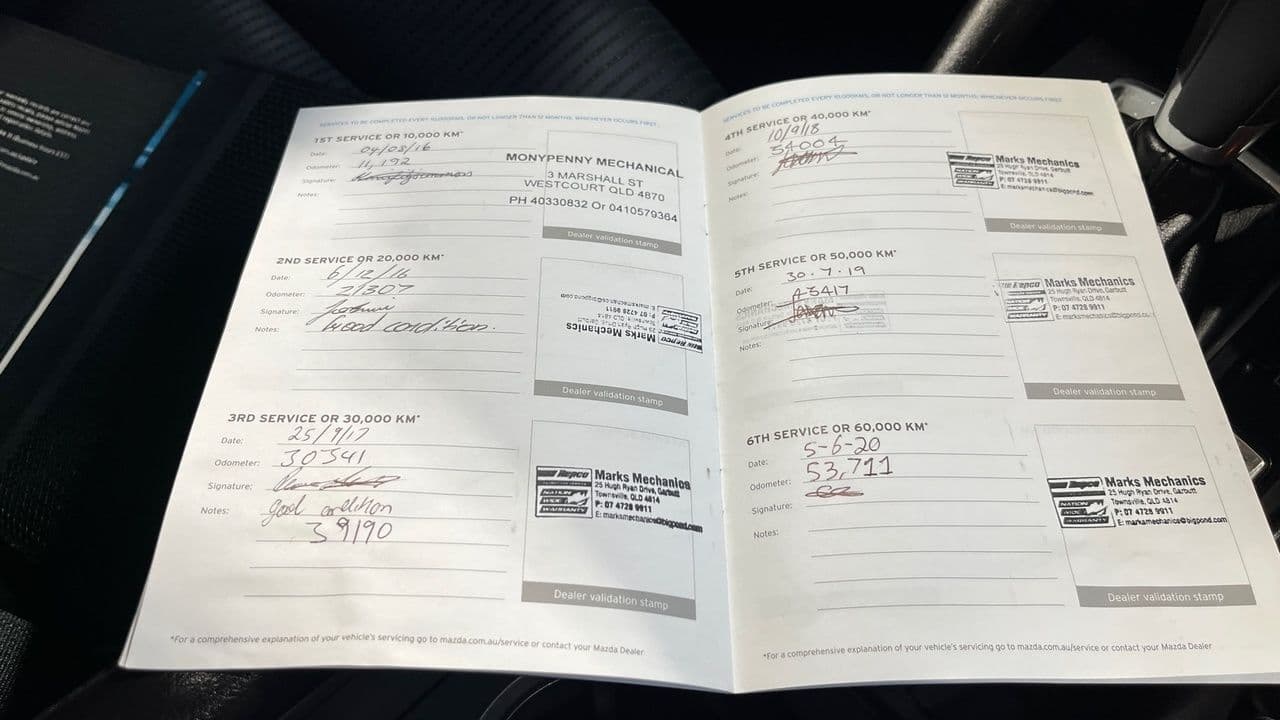 SERVICES TO BE COMPLETED EVERY 10,000KMS, OR NOT LONGER THAN 12 MONTHS, WHICHEVER OCCURS FIRST.
1ST SERVICE OR 10,000 KM*
Date: 04/08/16
Odometer: 11,192
Signature:
Notes:
MONYPENNY MECHANICAL
3 MARSHALL ST
WESTCOURT QLD 4870
PH 40330832 Or 0410579364
Dealer validation stamp
2ND SERVICE OR 20,000 KM*
Date: 6/12/16
Odometer: 21307
Signature:
Notes: Good condition.
Repco
Marks Mechanics
25 Hugh Ryan Drive, Garbutt
Townsville, QLD 4814
P: 07 4728 9911
E: marksmechanics@bigpond.com
Dealer validation stamp
3RD SERVICE OR 30,000 KM*
Date: 25/9/17
Odometer: 30341
Signature:
Notes: good condition
39190
Repco
NATION
WIDE
WARRANTY
Marks Mechanics
25 Hugh Ryan Drive, Garbutt
Townsville, QLD 4814
P: 07 4728 9911
E: marksmechanics@bigpond.com
Dealer validation stamp
*For a comprehensive explanation of your vehicle's servicing go to mazda.com.au/service or contact your Mazda Dealer
SERVICES TO BE COMPLETED EVERY 10,000KMS, OR NOT LONGER THAN 12 MONTHS, WHICHEVER OCCURS FIRST.
4TH SERVICE OR 40,000 KM*
Date: 10/9/18
Odometer: 54004
Signature:
Notes:
Repco
NATION
WIDE
WARRANTY
Marks Mechanics
25 Hugh Ryan Drive, Garbutt
Townsville, QLD 4814
P: 07 4728 9911
E: marksmechanics@bigpond.com
Dealer validation stamp
5TH SERVICE OR 50,000 KM*
Date: 30.7.19
Odometer:
Signature:
Notes:
Repco
Marks Mechanics
25 Hugh Ryan Drive, Garbutt
Townsville, QLD 4814
P: 07 4728 9911
E: marksmechanics@bigpond.co
Dealer validation stamp
6TH SERVICE OR 60,000 KM*
Date: 5-6-20
Odometer: 53,711
Signature:
Notes:
Repco
NATION
WIDE
WARRANTY
Marks Mechanics
25 Hugh Ryan Drive, Garbutt
Townsville, QLD 4814
P: 07 4728 9911
E: marksmechanics@bigpond.com
Dealer validation stamp
*For a comprehensive explanation of your vehicle's servicing go to mazda.com.au/service or contact your Mazda Dealer